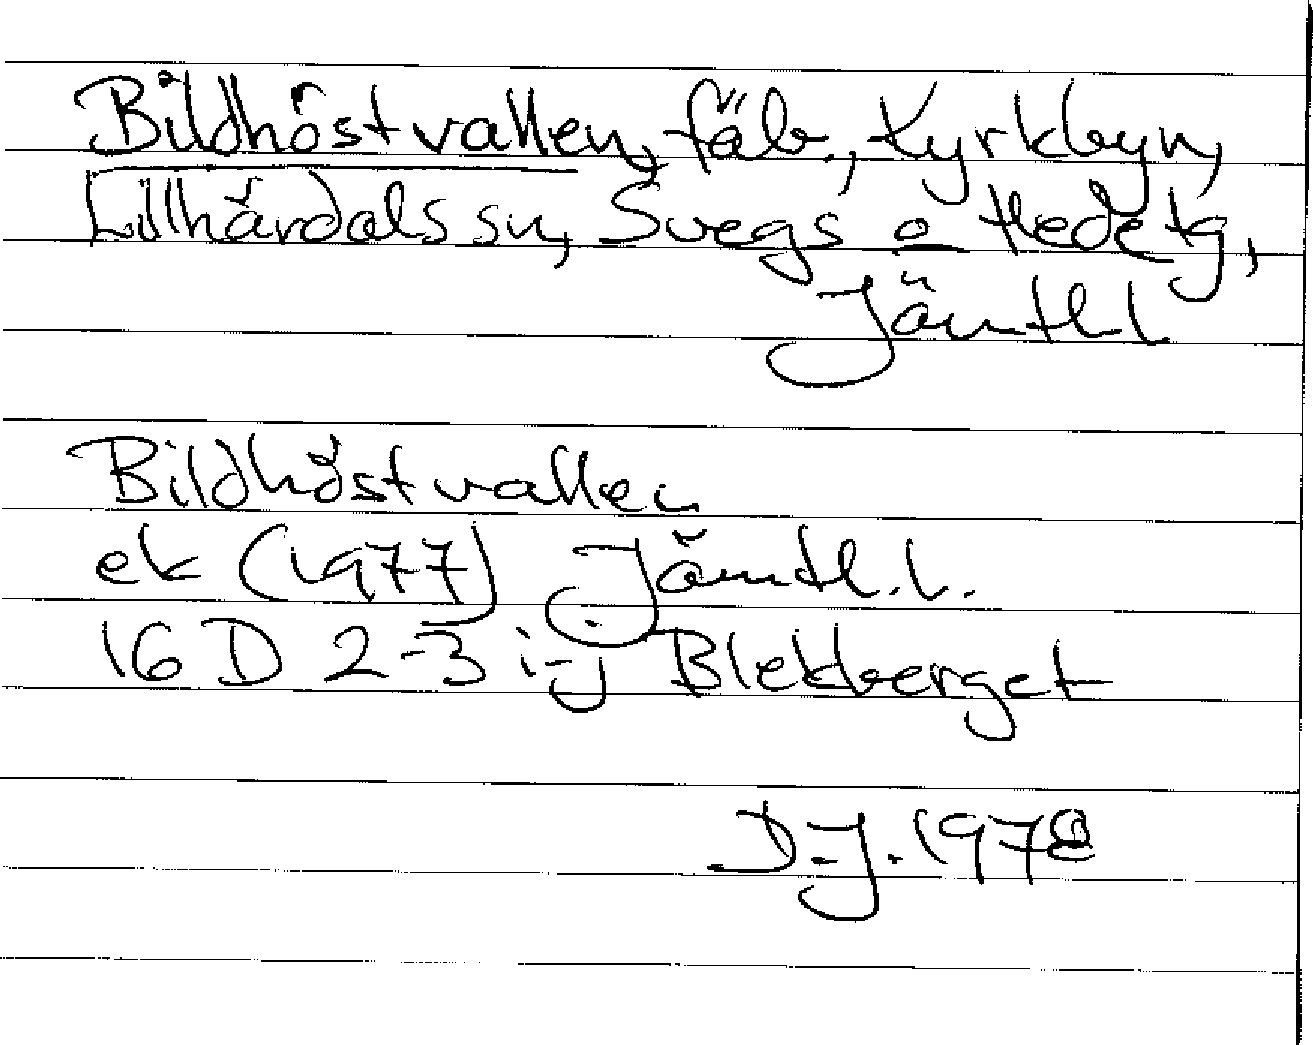 Bildhöstvallen, fäb., Kyrkbyn,
Lillhärdals sn, Svegs o Hede tg,
Jämtl. l
Bildhöstvallen
ek (1977) Jämtl. l.
16 D 2-3 i-j Blekberget
D-J. 1978